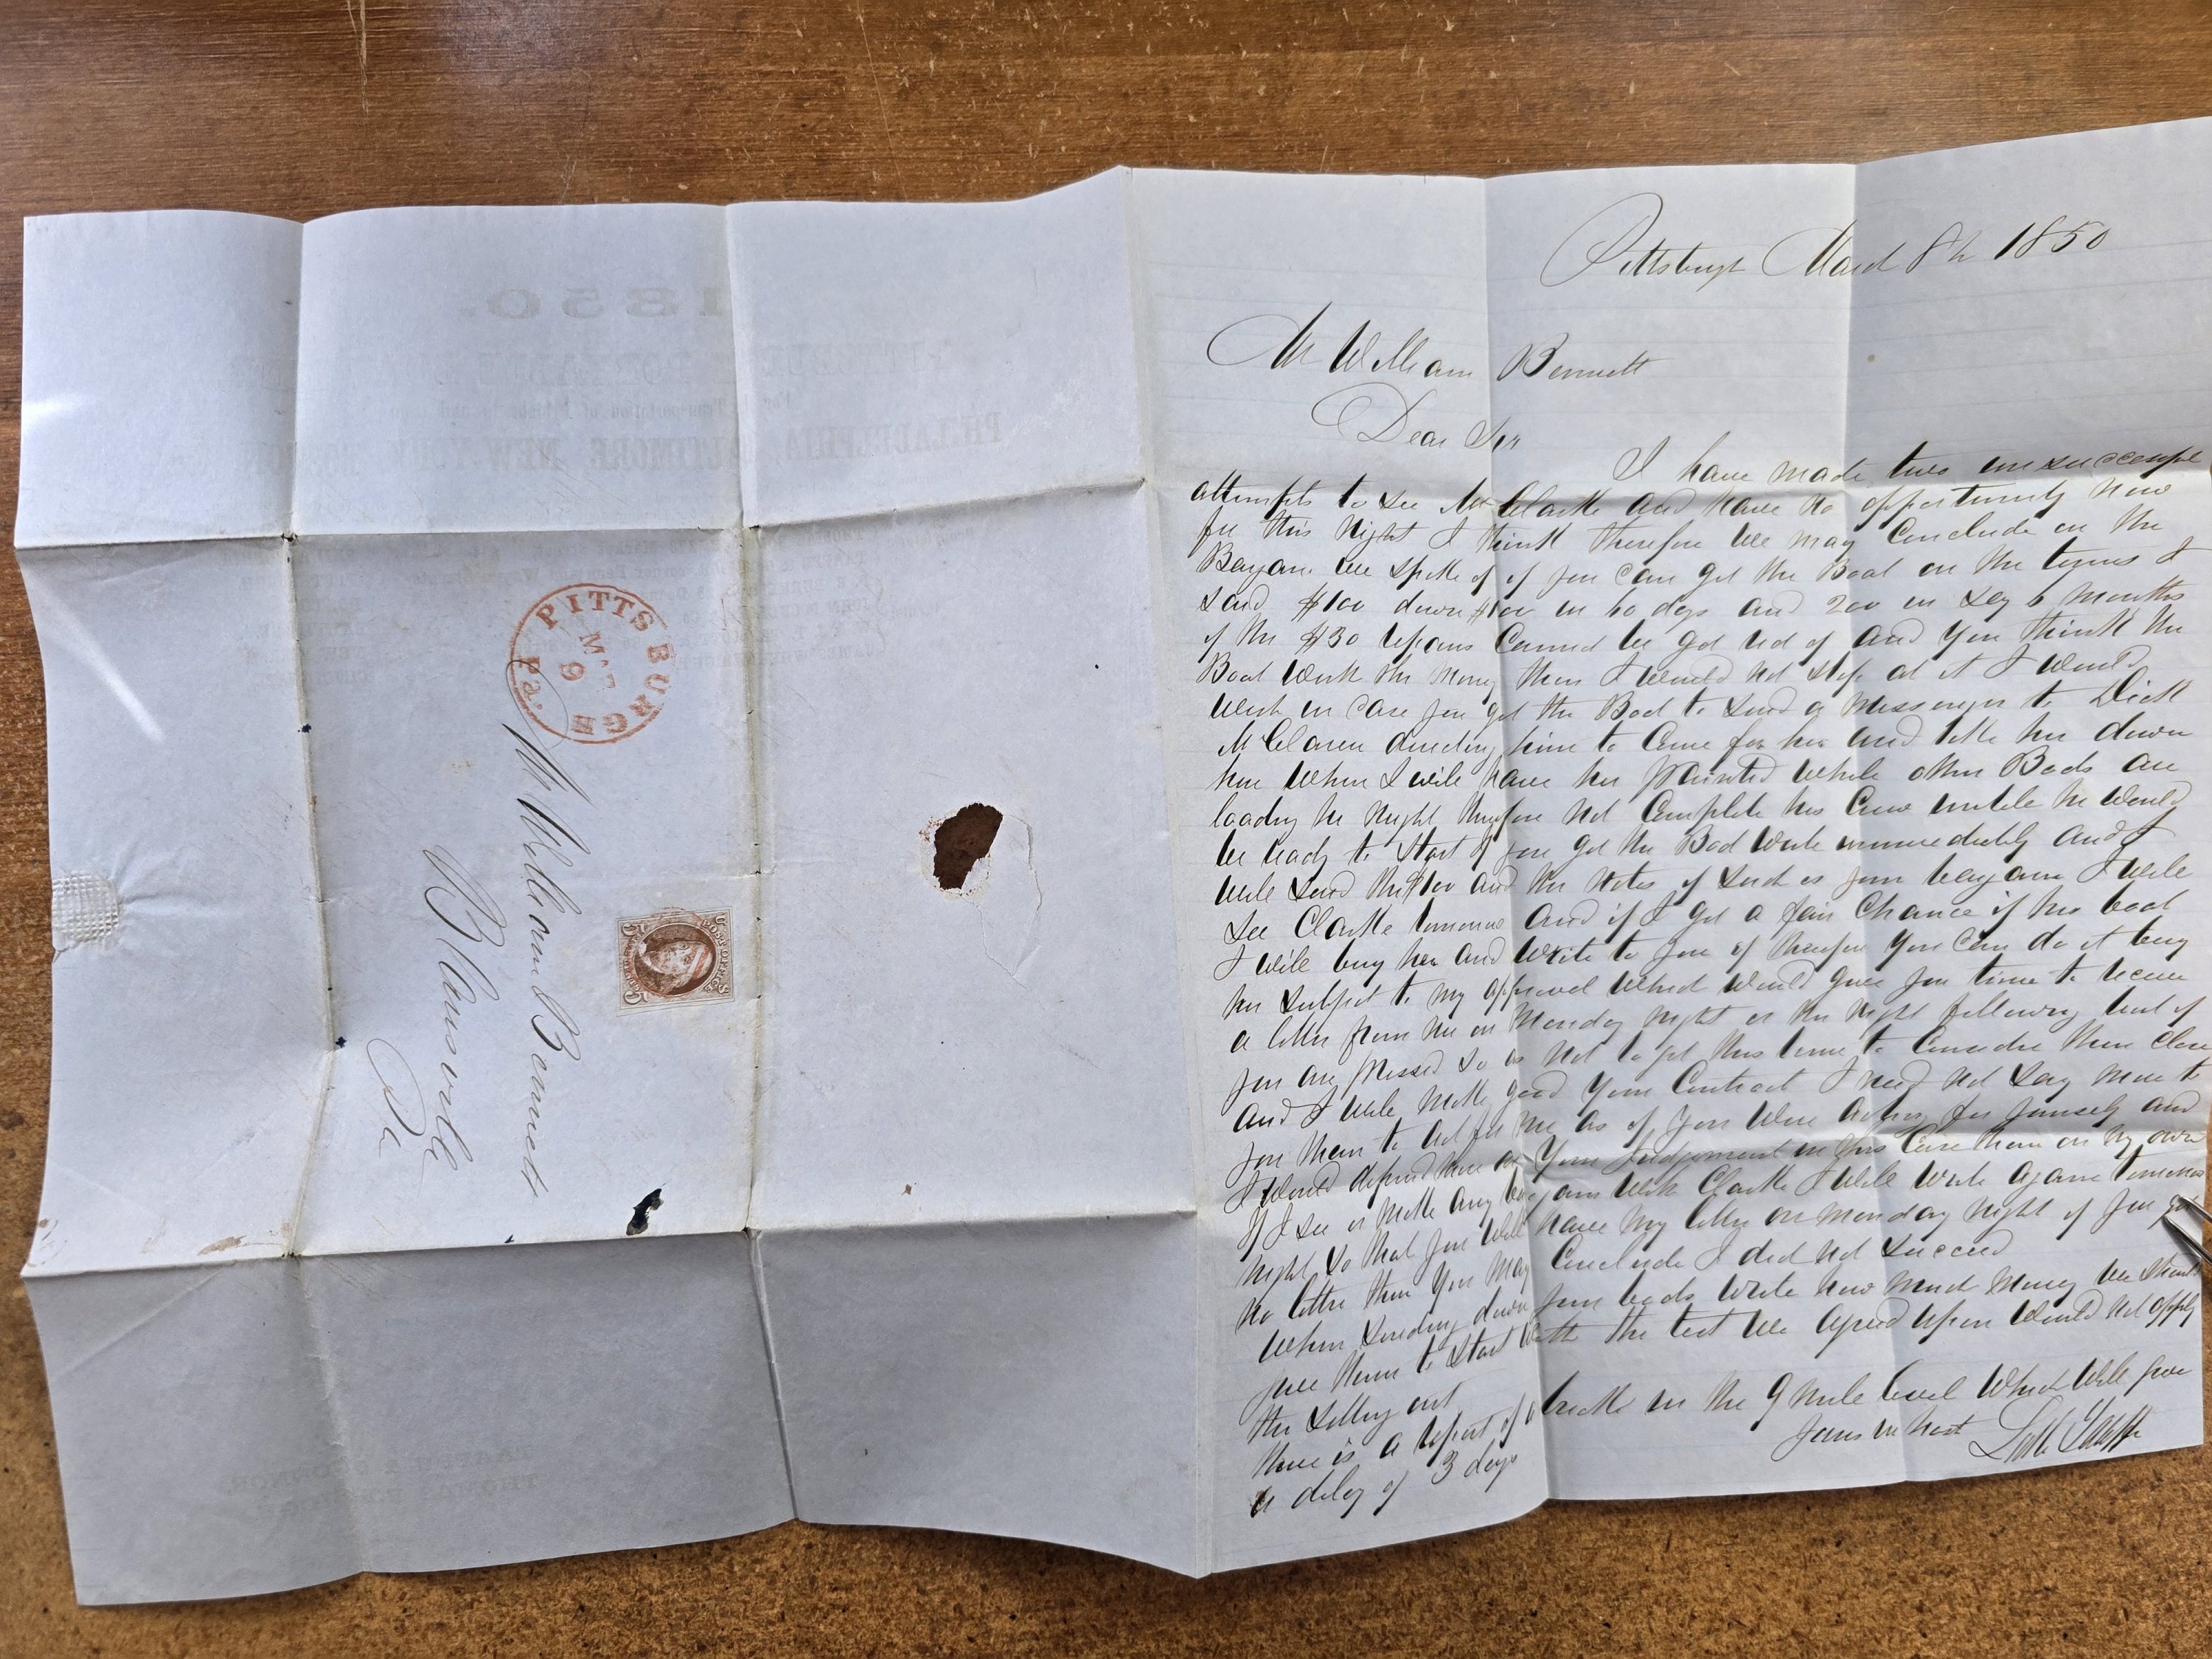 Pittsburgh March 8th 1850
Mr William Bennett
Dear Sir
I have made two unsuccessful
attempts to see Mr Clarke and have no opportunity now
for this night I think therefore we may conclude on the
Bargain we spoke of if you can get the Boat on the terms I
said $100 down $100 in 60 days and 200 in say 6 months
if the $30 repairs cannot be got rid of and you think the
Boat worth the money then I would not stop at it I would
wish in case you get the Boat to send a messenger to Dick
McClaren directing him to come for her and take her down
here when I will have her painted while other Boats are
loading he might therefore not complete his crew untill he would
be ready to start if you get the Boat write immediately and I
will send the $100 and the notes if such is your bargain I will
see Clarke tomorrow and if I get a fair chance of his boat
I will buy her and write to you if therefore you can do it buy
her subject to my approval which would give you time to receive
a letter from me on Monday night or the night following but if
you are pressed so as not to get this time to consider then close
and I will make good your contract I need not say more to
you than to act for me as if you were acting for yourself and
I would depend more on your Judgement in this case than on my own
If I see or make any bargain with Clarke I will write again tomorrow
night so that you will have my letter on monday night if you get
no letter then you may conclude I did not succeed
When sending down your boats write how much money we should
give them to start with the text we agreed upon would not apply
the setting out
there is a report of a break in the 9 mile level which will give
a delay of 3 days
Yours in haste
PITTSBURGH Pa.
9
Mr William Bennett
Blairsville
Pa
POST OFFICE
5 5
1850.
PHILADELPHIA, BALTIMORE, NEW YORK